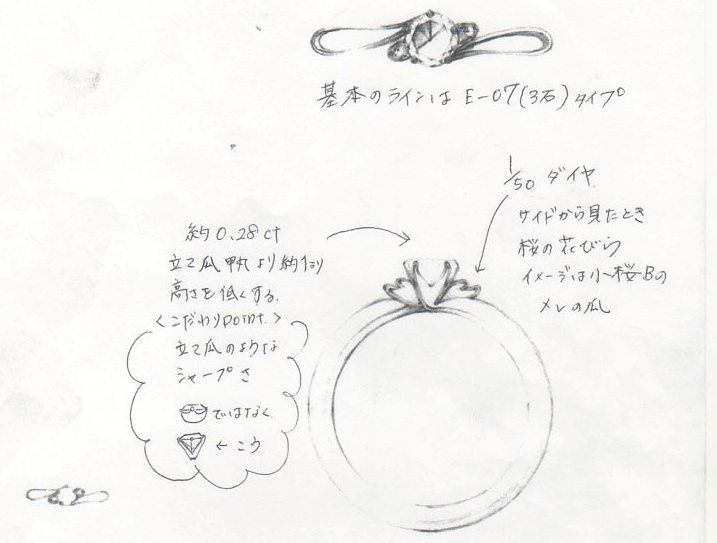 基本のラインは E-07(3石)タイプ
1/50 ダイヤ
サイドから見たとき
桜の花びら
イメージは小桜-Bの
メレの爪
約0.28ct
立て爪 より約
高さを低くする.
<こだわりpoint.>
立て爪のような
シャープさ
ではなく
←こう